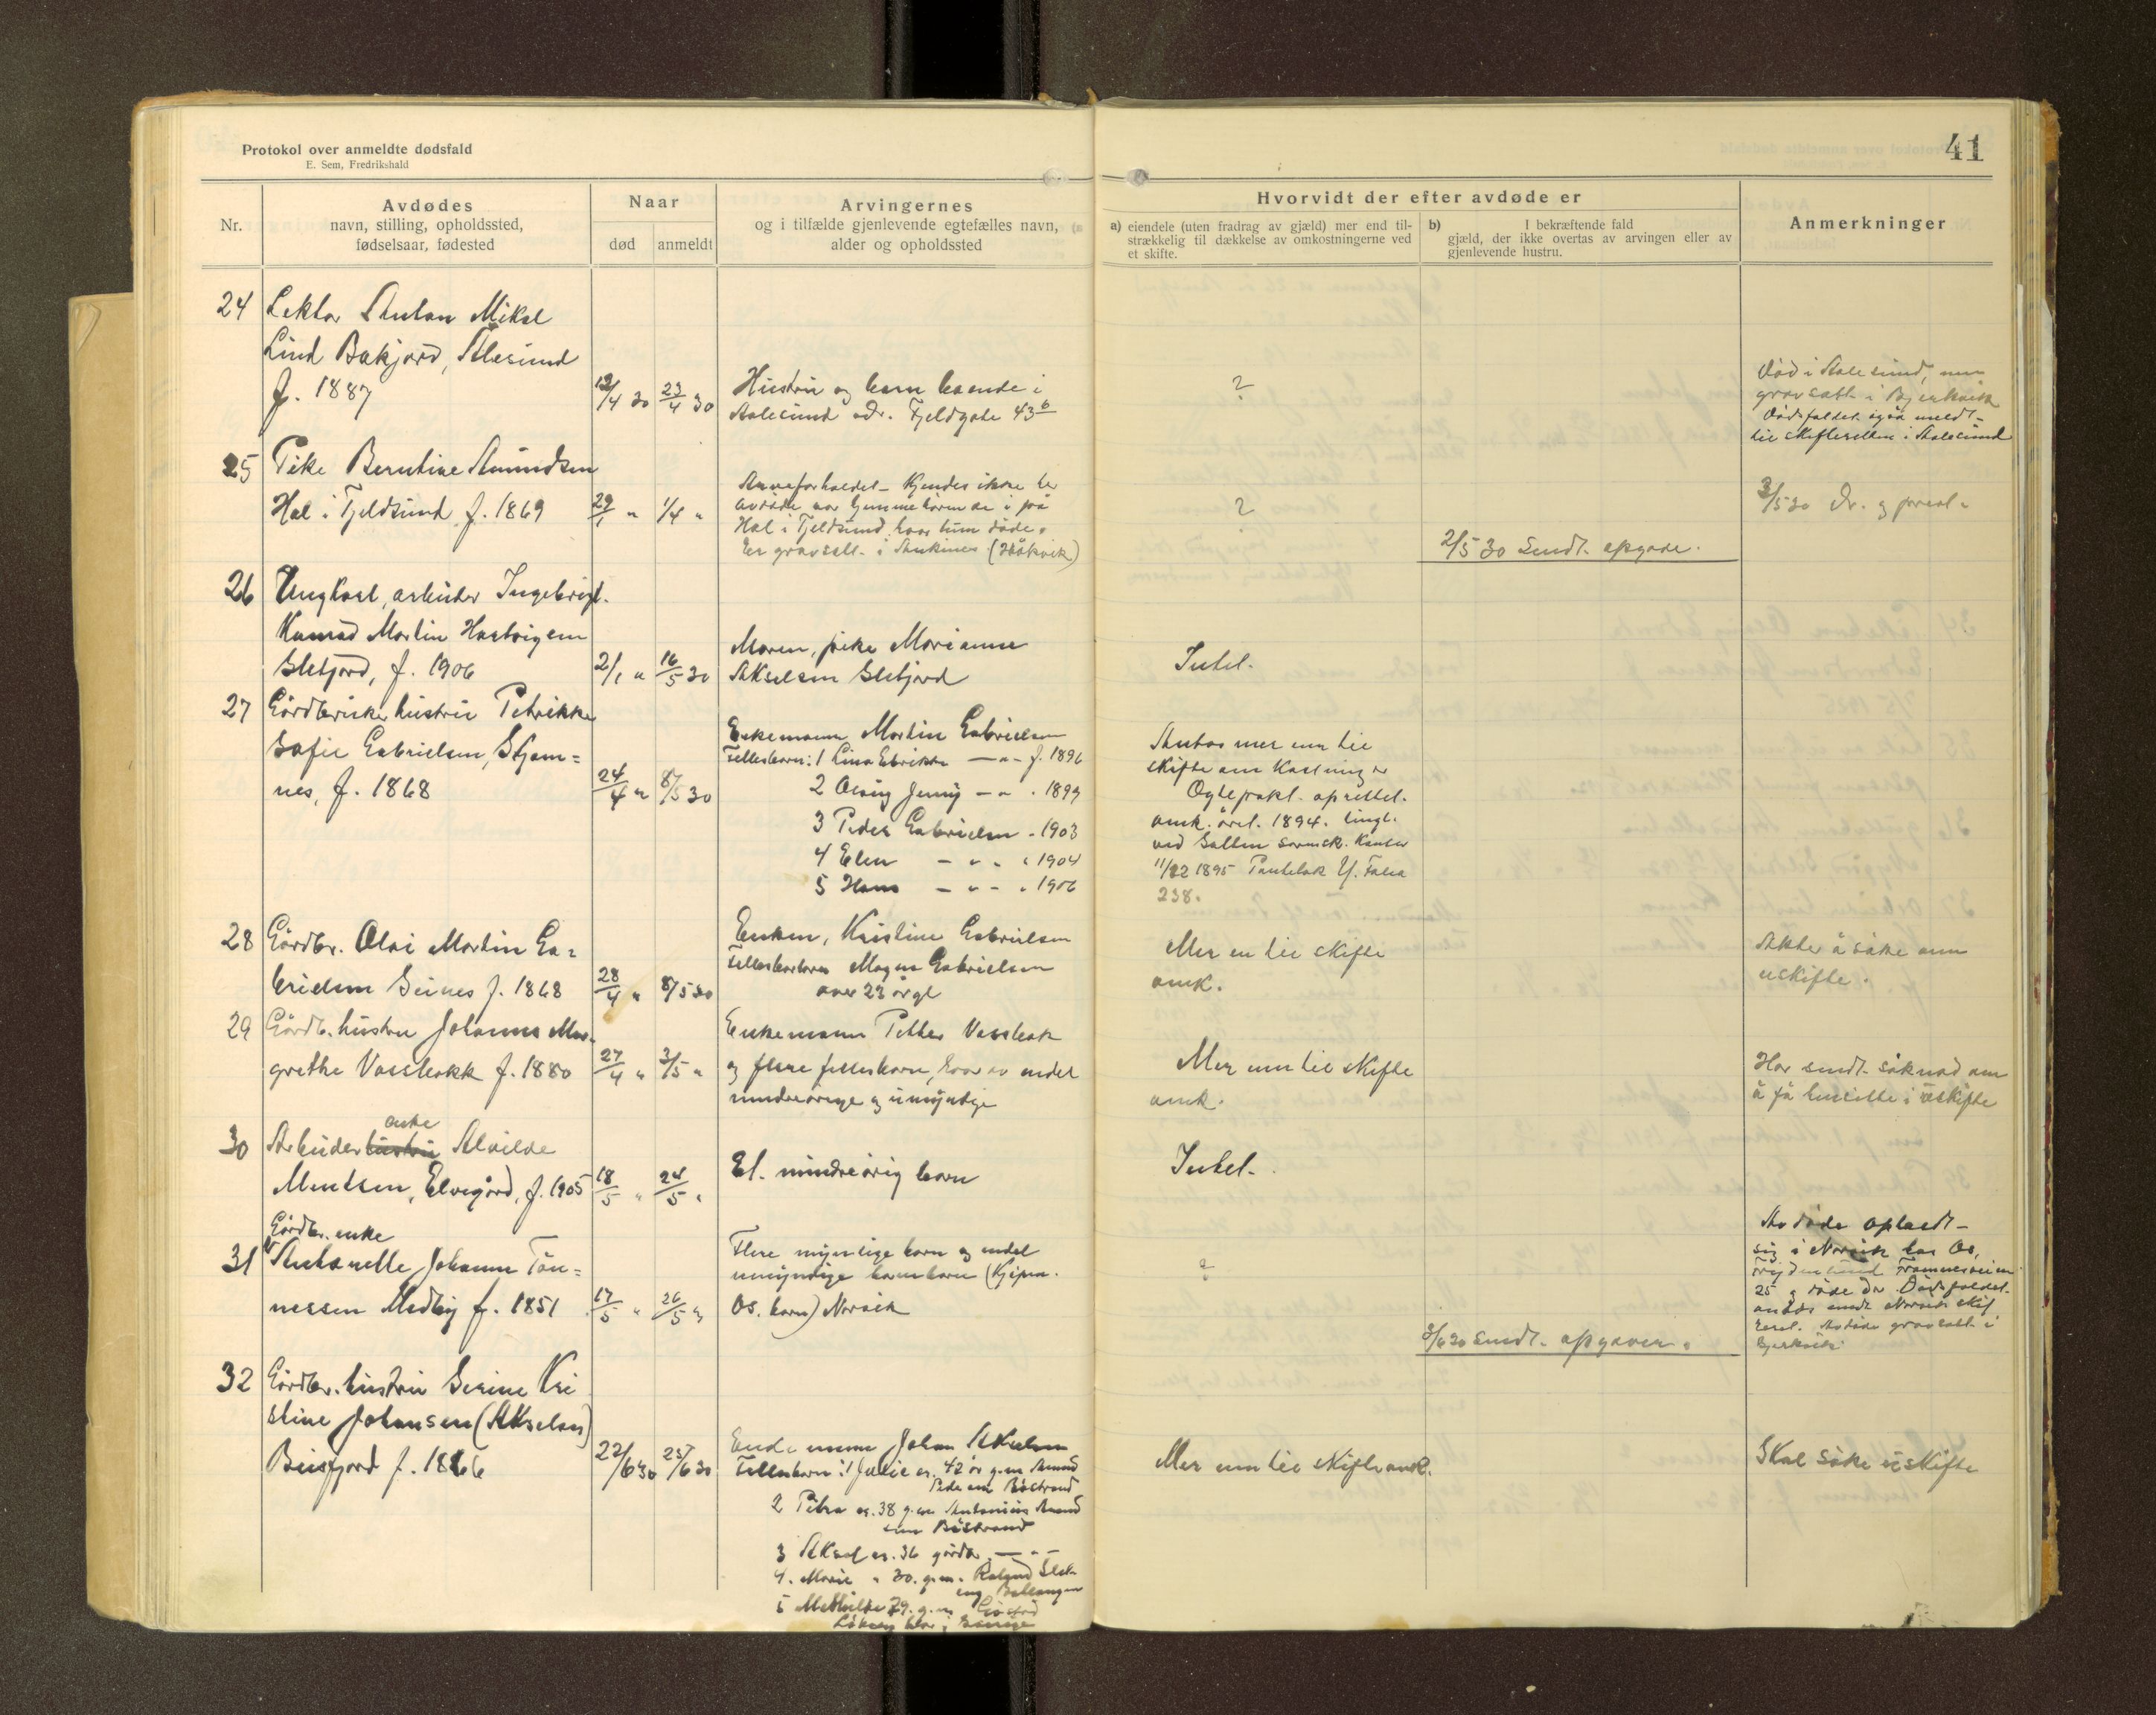 Protokol over anmeldte dødsfald
E. Sem, Fredrikshald
41
Nr.
Avdødes
navn, stilling, opholdssted,
fødselsaar, fødested
Naar
død
anmeldt
Arvingernes
og i tilfælde gjenlevende egtefælles navn,
alder og opholdssted
Hvorvidt der efter avdøde er
a) eiendele (uten fradrag av gjæld) mer end til-
strækkelig til dækkelse av omkostningerne ved
et skifte.
b) I bekræftende fald
gjæld, der ikke overtas av arvingen eller av
gjenlevende hustru.
Anmerkninger
24 Lektor Anton Mikal
Lind Bakjord, Ålesund
f. 1887
12/4 30 23/4 30
Hustru og barn boende i
Aalesund adr. Fjeldgate 43 b
?
Død i Aalesund, men
gravsatt i Bjerkvik
Dødsfaldet også meldt
til skifteretten i Aalesund
25 Pike Berntine Amundsen
Hol i Tjeldsund f. 1869
29/1 " 1/4 "
Arveforholdet kjendes ikke
avdøde var hjemmehørende i på
Hol i Tjeldsund hvor hun døde.
Er gravsatt i Ankenes (Håkvik)
?
2/5 30 Sendt opgave.
3/5 30
26 Ungkarl, arbeider Ingebrigt
Konrad Martin Hartvigsen
Sletjord, f. 1906
2/1 " 16/5 30
Moren, pike Marianne
Akselsen Sletjord
Intet.
27 Gårdbrukerhustru Petrikke
Sofie Gabrielsen, Skjom=
nes, f. 1868
24/4 " 8/5 30
Enkemann Martin Gabrielsen
Fellesbarn: 1 Lina — " - f. 1896
2 Jenny - " . 1899
3 Peder Gabrielsen - 1903
4 Elen - " - " 1904
5 Hans - " - " 1906
Antas mer enn til
skifte omkostninger
Ogtepakt oprettet
omk. året 1894. tingl.
ved Salten sorensk. kontor
11/12 1895 Pantebok Folio
238.
28 Gårdbr. Olai Martin Ga=
brielsen Seines f. 1868
28/4 " 8/5 30
Enken, Kristine Gabrielsen
Magna Gabrielsen
over 23 år gl
Mer en til skifte
omk.
Akter å søke om
uskifte.
29 Gårdb. hustru Johanna Mar-
grethe Vassbakk f. 1880
27/4 " 3/5 "
Enkemann Petter Vassbakk
og flere fellesbarn, hvorav endel
mindreårige og umyndige
Mer enn til skifte
omk.
Har sendt søknad om
å få hensitte i uskifte
30 Arbeider hustru enke Alvilde
Mentsen, Elvegård, f. 1905
18/5 " 24/5 "
Et mindreårig barn
Intet.
Gårdbr. enke
31 Antonette Johanna Tøn=
nessen Medby f. 1851
17/5 " 26/5 "
Flere myndige barn og endel
umyndige barnebarn
Os. barn) Narvik
?
3/6 30 Sendt opgaver.
Avdøde opholdt
sig i Narvik hos Os,
25 og døde der Dødsfaldet
Narvik skif
teret. Avdøde gravsatt i
Bjerkvik
32 Gårdbr. hustru Serine Kri
stine Johansen (Akselsen)
Beisfjord f. 1866
22/6 30 25/6 30
Johan Akselsen
Fellesbarn: 1 Julie er. 42 år g.m. Amund
Pedersen Båstrand
2 Petra er. 38 g.m. Antonius Amund
sen Båstrand
3 Aksel er. 36 gårdbr. — " —
4. Marie " 30. g.m.
Ballangen
5 Methilde 29. g.m. Gustav
bor i Sverige
Mer enn til skifteomk.
Skal søke uskifte